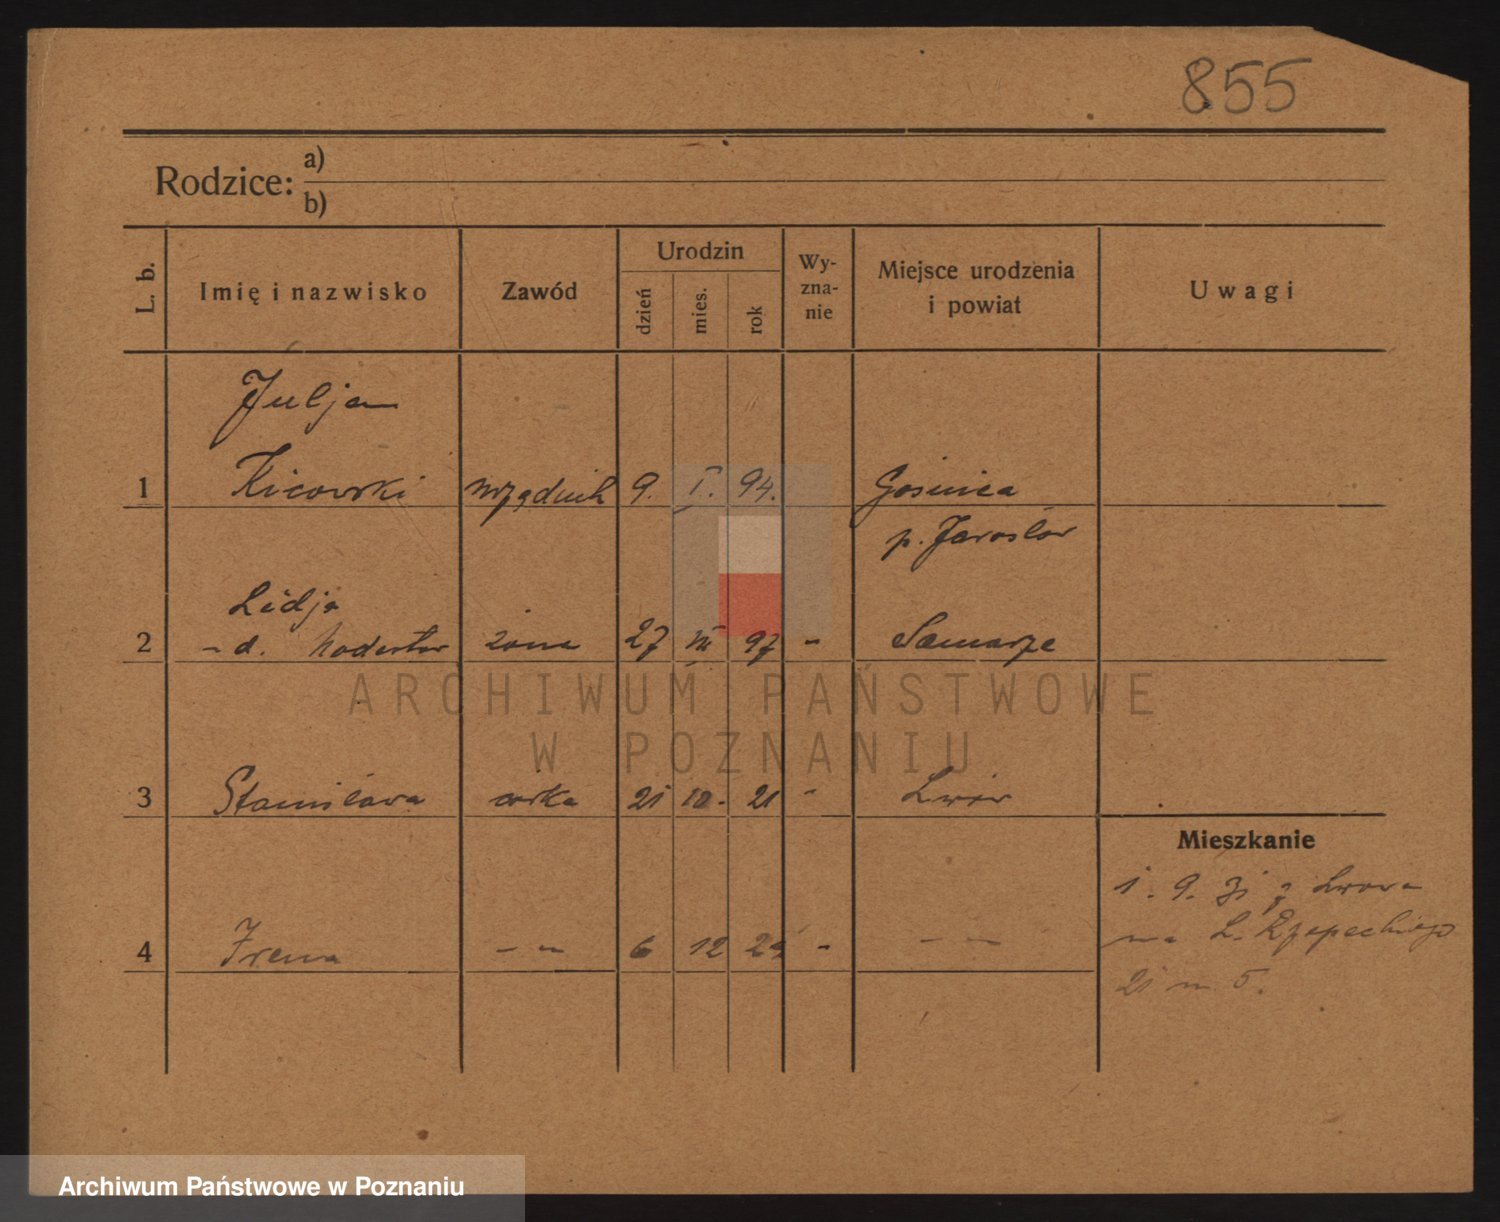 855
Rodzice: a)
b)
L. b.
Imię i nazwisko
Zawód
Urodzin
dzień
mies.
rok
Wy-
zna-
nie
Miejsce urodzenia
i powiat
Uwagi
Juljan
1 Kicowski urzędnik 9. I. 94.
p. Jarosław
Lidja
2 - d. żona 27 97 -
3 Stanisława córka 21 10. 21 - Lwów
Mieszkanie
1. 9. 31 z Lwowa
4 Irena - - 6 12 24 - - -
na L. Rzepeckiego
21 m 5.
ARCHIWUM PAŃSTWOWE
W POZNANIU
Archiwum Państwowe w Poznaniu